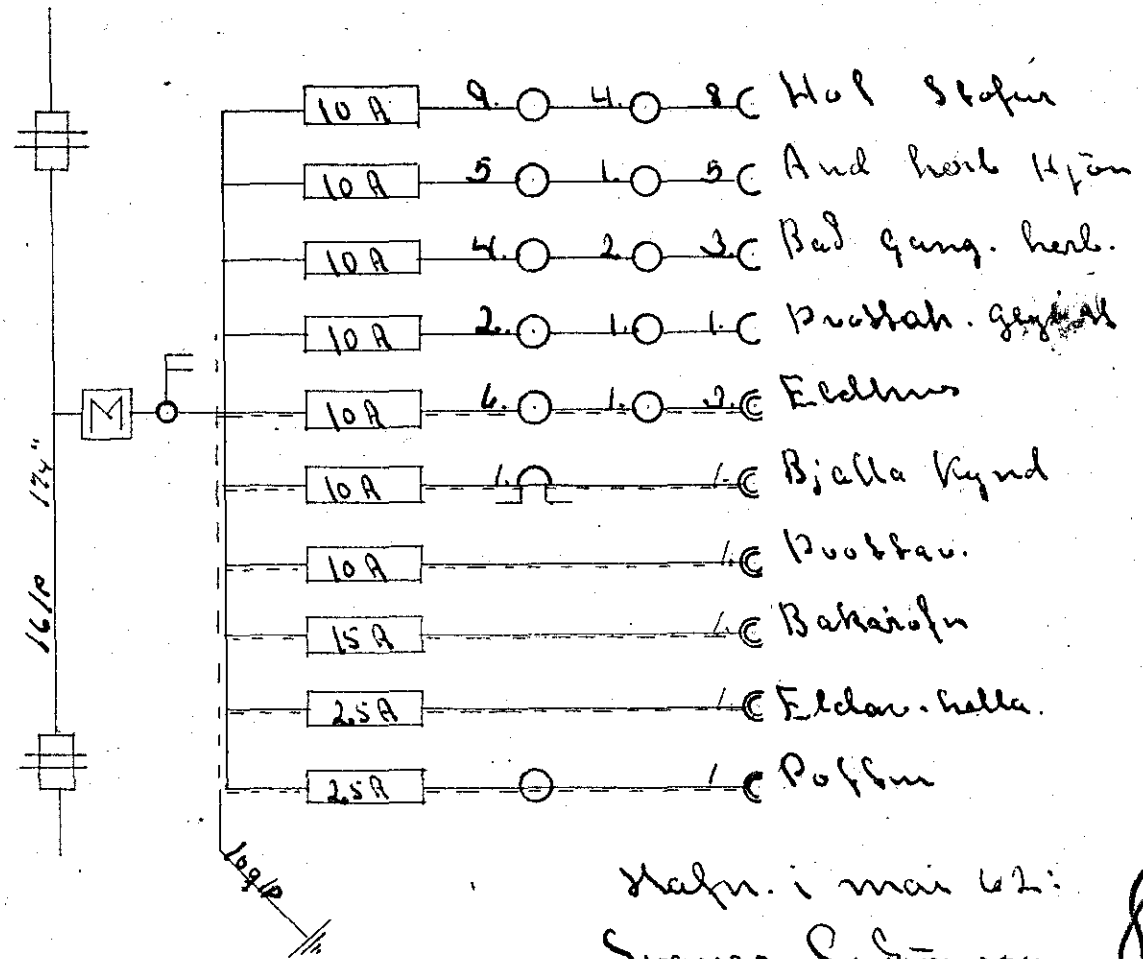 10 A 9. 4. 8 Hol Stofur
10 A 5 1. 5 And herb Hjón
10 A 4. 2. 3. Bað gang. herb.
10 A 2. 1. 1. Þvottah.
10 A 6. 1. 3. Eldhus
M
10 A 1. 1. Bjalla Kynd
16/R 1¼"
10 A 1. Þvottav.
15 A 1. Bakarofn
25 A 1 Eldav. hella.
25 A 1
10q/R
Hafn. i mai 62: